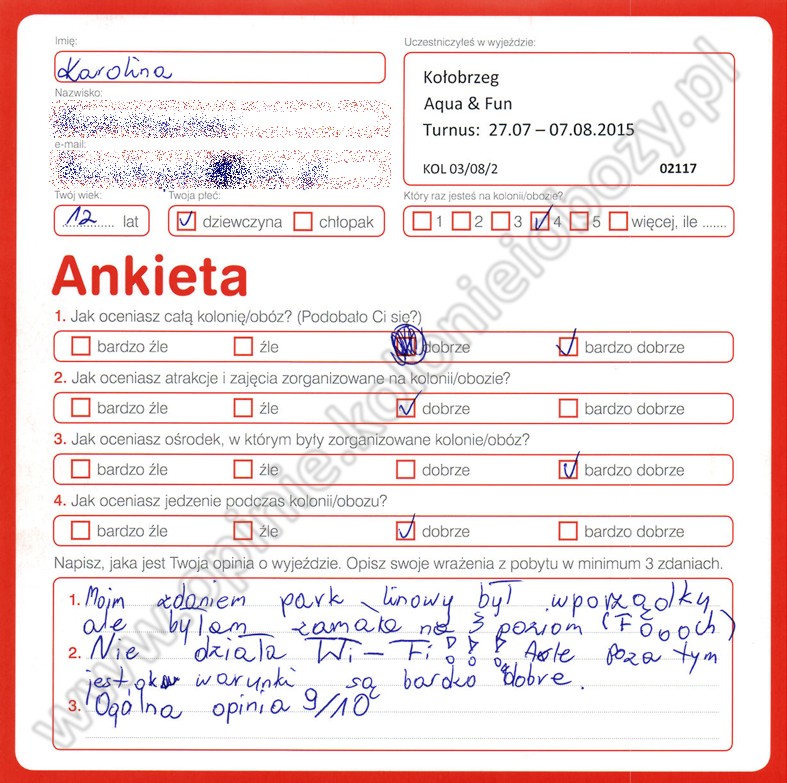 Imię:
Karolina
Uczestniczyłeś w wyjeździe:
Kołobrzeg
Aqua & Fun
Turnus: 27.07 – 07.08.2015
KOL 03/08/2 02117
Nazwisko:
e-mail:
Twój wiek:
12 lat
Twoja płeć:
dziewczyna chłopak
Który raz jesteś na kolonii/obozie?
1 2 3 4 5 więcej, ile .......
Ankieta
1. Jak oceniasz całą kolonię/obóz? (Podobało Ci się?)
bardzo źle źle dobrze bardzo dobrze
2. Jak oceniasz atrakcje i zajęcia zorganizowane na kolonii/obozie?
bardzo źle źle dobrze bardzo dobrze
3. Jak oceniasz ośrodek, w którym były zorganizowane kolonie/obóz?
bardzo źle źle dobrze bardzo dobrze
4. Jak oceniasz jedzenie podczas kolonii/obozu?
bardzo źle źle dobrze bardzo dobrze
Napisz, jaka jest Twoja opinia o wyjeździe. Opisz swoje wrażenia z pobytu w minimum 3 zdaniach.
1. Moim zdaniem park linowy był wporządku
ale byłam zamała na 3 poziom (Foooch)
2. Nie działa Wi-Fi!!! poza tym
jest ok warunki są bardzo dobre.
3. Ogólna opinia 9/10
www.opinie.kolonieiobozy.pl